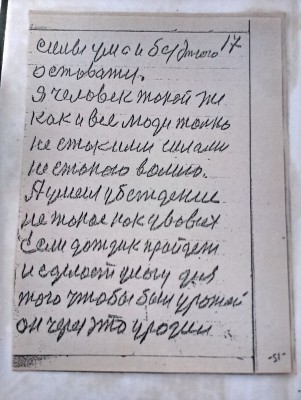 силы ума и без этого 17
остовоти.
я человек такой же
как и все люди только
не стокими силами
не стокою волию.
А умом убеждение
не токое как у всех
Если дождик пройдет
и сделает улогу для
того чтобы был урожай
он через это
-51-